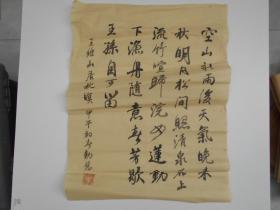 空山新雨後天氣晚来
秋明月松间照清泉石上
流竹喧歸浣女蓮動
下漁舟隨意春芳歇
王孫自可留
王維山居秋暝 甲午初冬